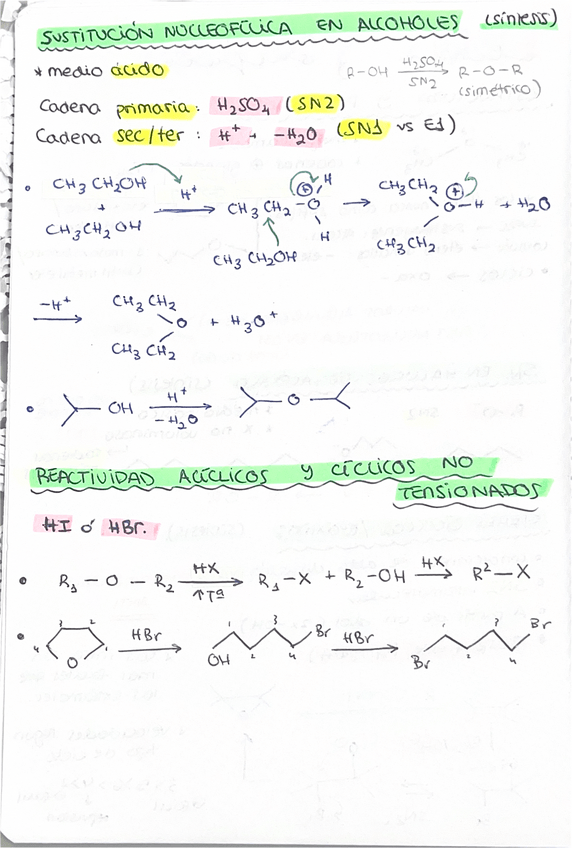 SUSTITUCIÓN NUCLEOFÍLICA EN ALCOHOLES (síntesis)
* medio ácido
R-OH H₂SO₄ SN2 R-O-R (simétrico)
Cadena primaria: H₂SO₄ (SN2)
Cadena sec/ter: H⁺ + -H₂O (SN1 vs E1)
CH₃CH₂OH + CH₃CH₂OH H⁺ → CH₃CH₂-O-H H CH₃CH₂OH → CH₃CH₂ O-H CH₃CH₂ + H₂O
-H⁺ → CH₃CH₂ O CH₃CH₂ + H₃O⁺
OH H⁺ -H₂O → O
REACTIVIDAD ACÍCLICOS Y CÍCLICOS NO
TENSIONADOS
HI ó HBr.
R₁-O-R₂ HX ↑Tª → R₁-X + R₂-OH HX → R²-X
1 2 3 4 O HBr → OH 1 2 3 4 Br HBr → Br 1 2 3 4 Br